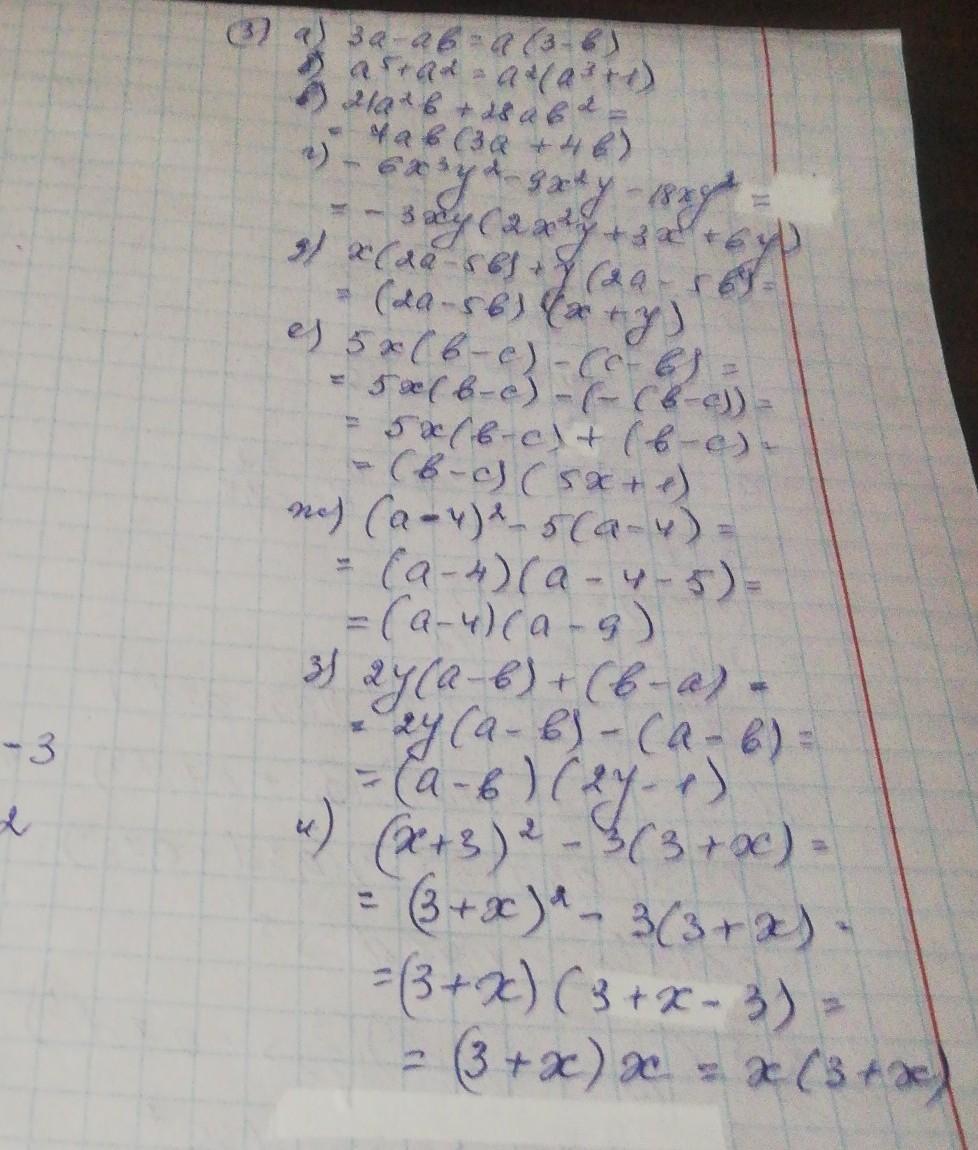 3) а) 3a-ab=a(3-b)
б) a⁵+a²=a²(a³+1)
в) 21a²b+28ab²=
= 7ab(3a+4b)
г) -6x³y²-9x²y-18xy²=
= -3xy(2x²y+3x+6y)
д) x(2a-5b)+y(2a-5b)=
= (2a-5b)(x+y)
е) 5x(b-c)-(c-b)=
= 5x(b-c)-(-(b-c))=
= 5x(b-c)+(b-c)=
= (b-c)(5x+1)
ж) (a-4)²-5(a-4)=
= (a-4)(a-4-5)=
= (a-4)(a-9)
з) 2y(a-b)+(b-a)=
= 2y(a-b)-(a-b)=
= (a-b)(2y-1)
и) (x+3)²-3(3+x)=
= (3+x)²-3(3+x)=
= (3+x)(3+x-3)=
= (3+x)x = x(3+x)
-3
2